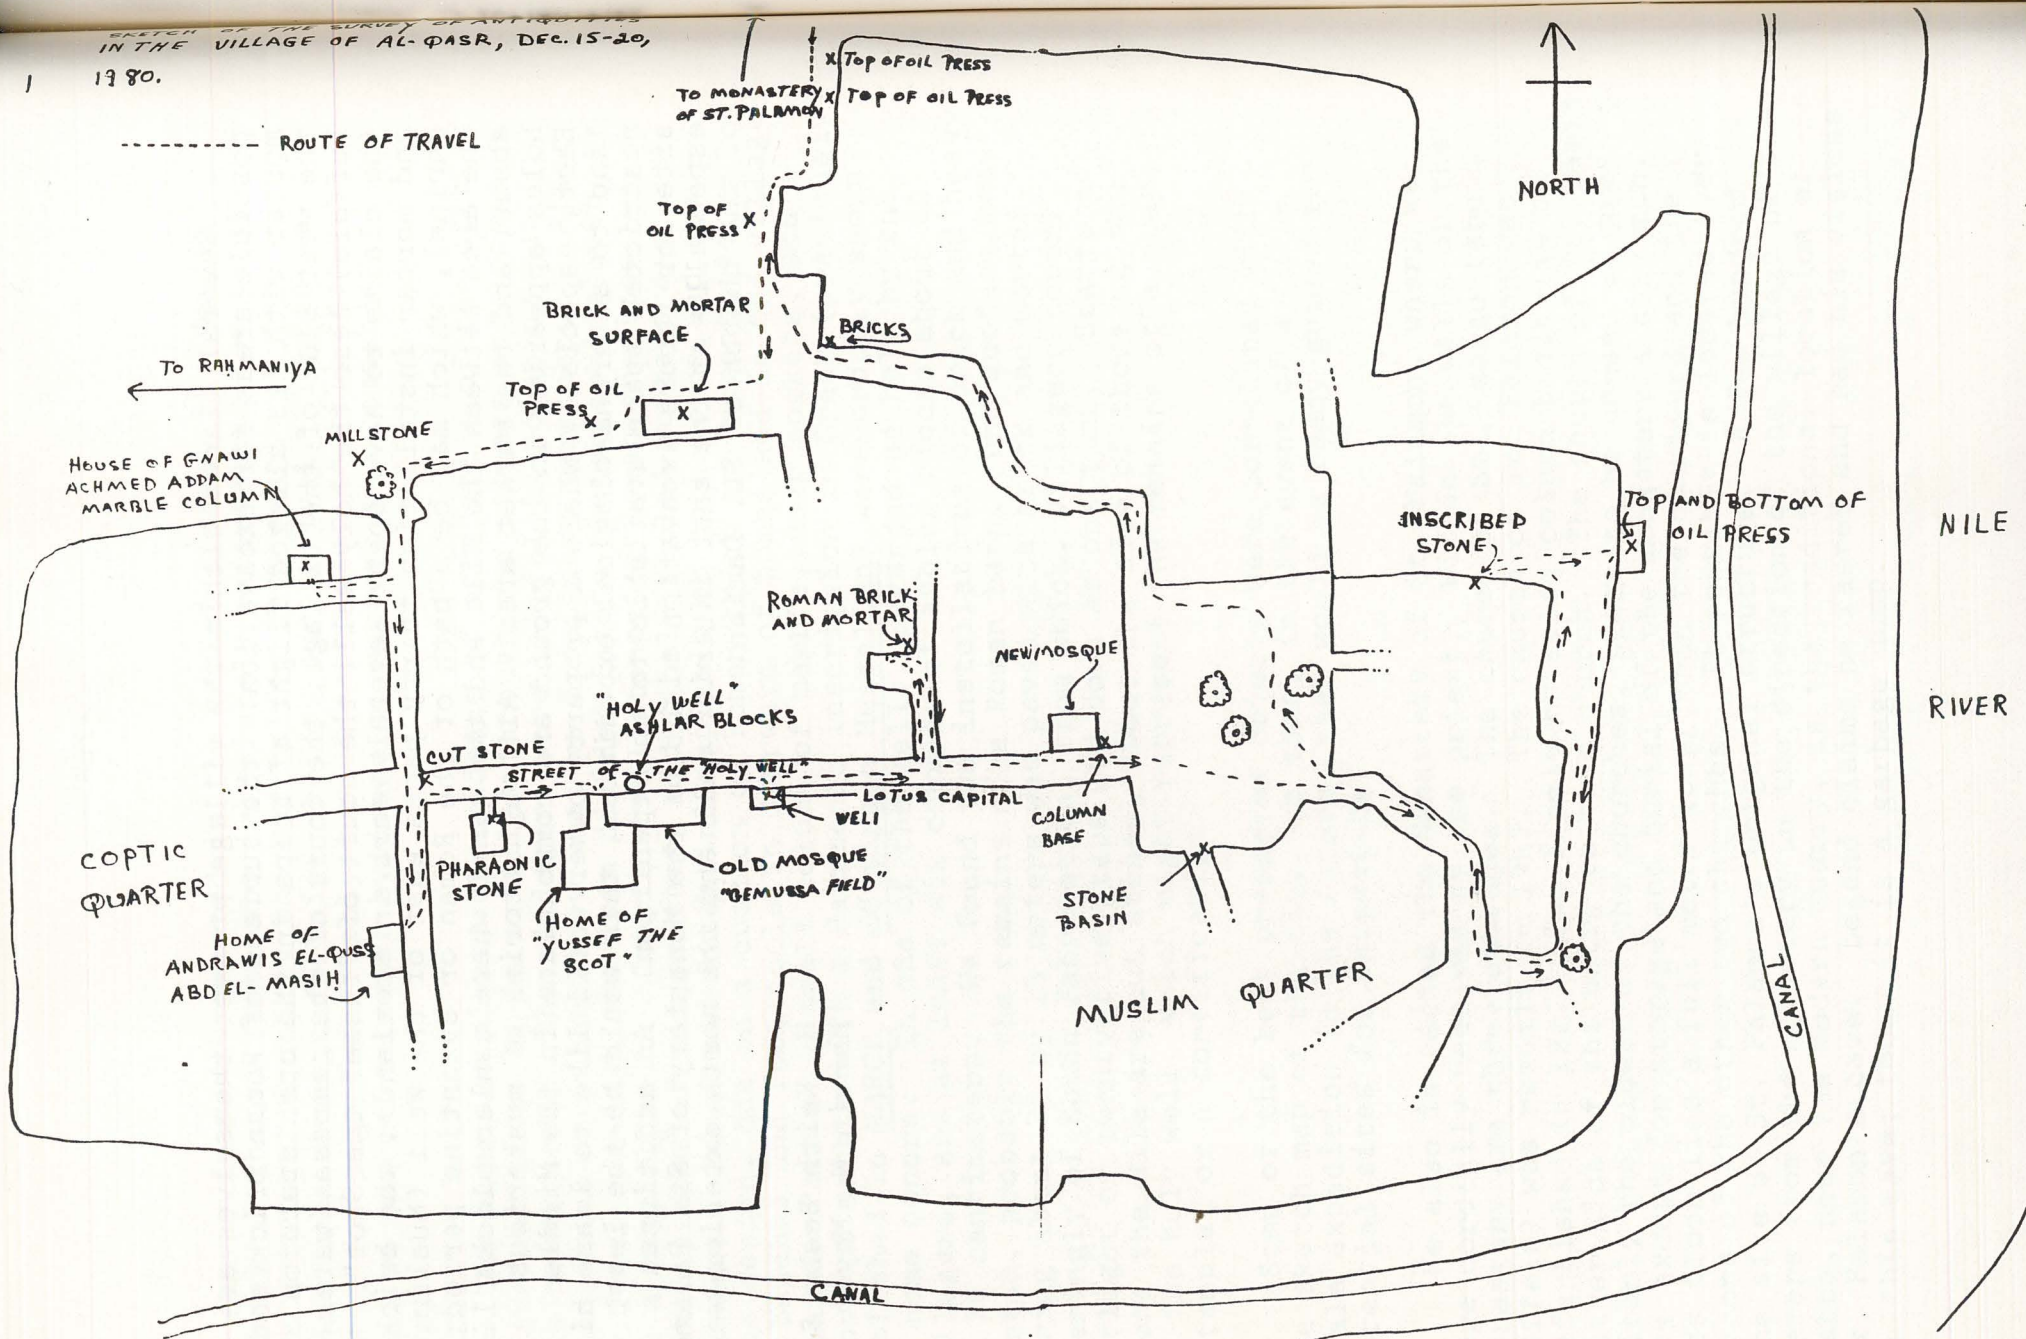 SKETCH OF THE SURVEY OF ANTIQUITIES
IN THE VILLAGE OF AL-QASR, DEC. 15-20,
1980.
1
ROUTE OF TRAVEL
TO MONASTERY
OF ST. PALAMON
TOP OF OIL PRESS
TOP OF OIL PRESS
NORTH
TOP OF
OIL PRESS
BRICK AND MORTAR
SURFACE
BRICKS
TO RAHMANIYA
TOP OF OIL
PRESS
MILLSTONE
HOUSE OF GNAWI
ACHMED ADDAM
MARBLE COLUMN
INSCRIBED
STONE
TOP AND BOTTOM OF
OIL PRESS
NILE
RIVER
ROMAN BRICK
AND MORTAR
NEW MOSQUE
"HOLY WELL"
ASHLAR BLOCKS
CUT STONE
STREET OF THE "HOLY WELL"
LOTUS CAPITAL
WELI
COLUMN
BASE
COPTIC
QUARTER
PHARAONIC
STONE
OLD MOSQUE
"GEMUSSA FIELD"
STONE
BASIN
HOME OF
"YUSSEF THE
SCOT"
HOME OF
ANDRAWIS EL-QUSS
ABD EL-MASIH
MUSLIM QUARTER
CANAL
CANAL